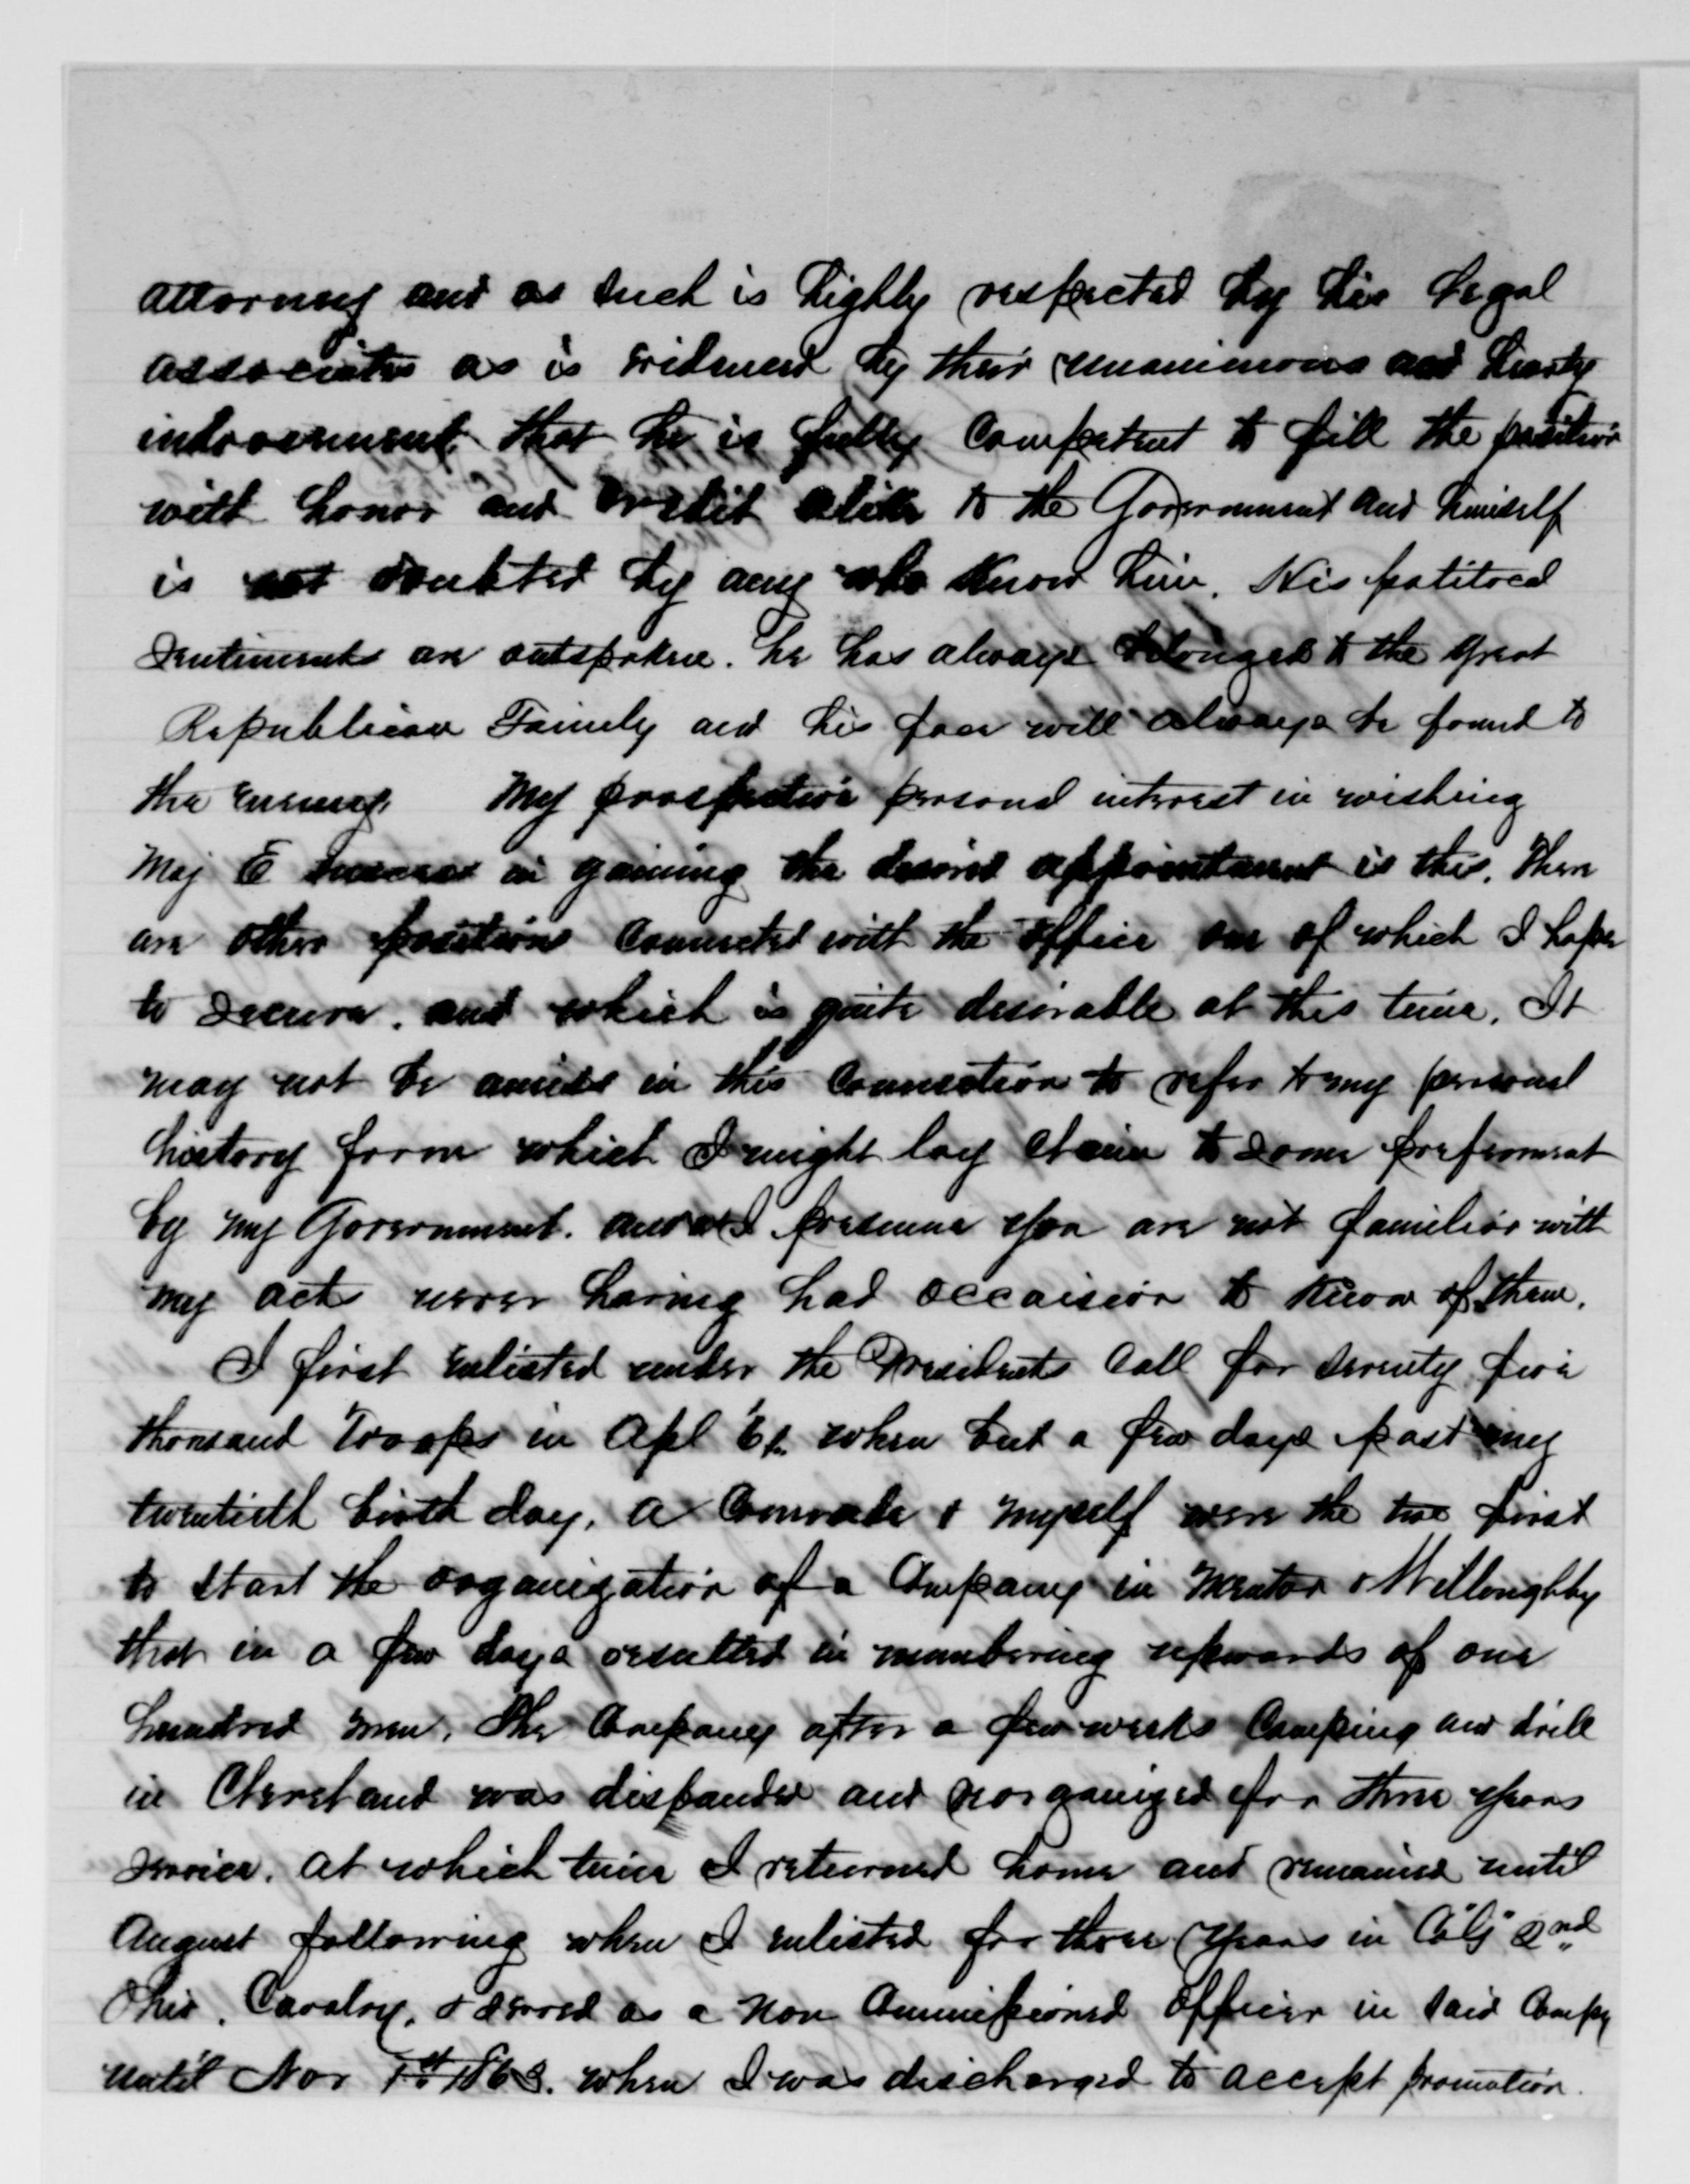 attorney and as such is highly respected by his legal
associates as is evidenced by their unanimous and hearty
indorsement that he is fully Competent to fill the position
with honor and Credit alike to the Government and himself
is not doubted by any who know him. His political
sentiments are outspoken. he has always belonged to the great
Republican Family and his face will always be found to
the enemy. My prospective personal interest in wishing
Maj E success in gaining the desired appointment is this. There
are other positions Connected with the office one of which I hope
to secure. and which is quite desirable at this time. It
may not be amiss in this Connection to refer to my personal
history from which I might lay claim to some preferment
by my Government. and as I presume you are not familiar with
my acts never having had occaision to know of them.
I first enlisted under the Presidents Call for seventy five
thousand Troops in Apl 61. when but a few days past my
twentieth birth day. A Comrade & myself were the two first
to start the organization of a Company in Mentor & Willoughby
that in a few days resulted in numbering upwards of one
hundred men. The Company after a few weeks Camping and drill
in Cleveland was disbanded and reorganized for three years
service. at which time I returned home and remained until
August following when I enlisted for three years in Co "G" 2nd
Ohio. Cavalry. & served as a Non Commissioned officer in said Compy
until Nov 1st 1863. when I was discharged to accept promotion.